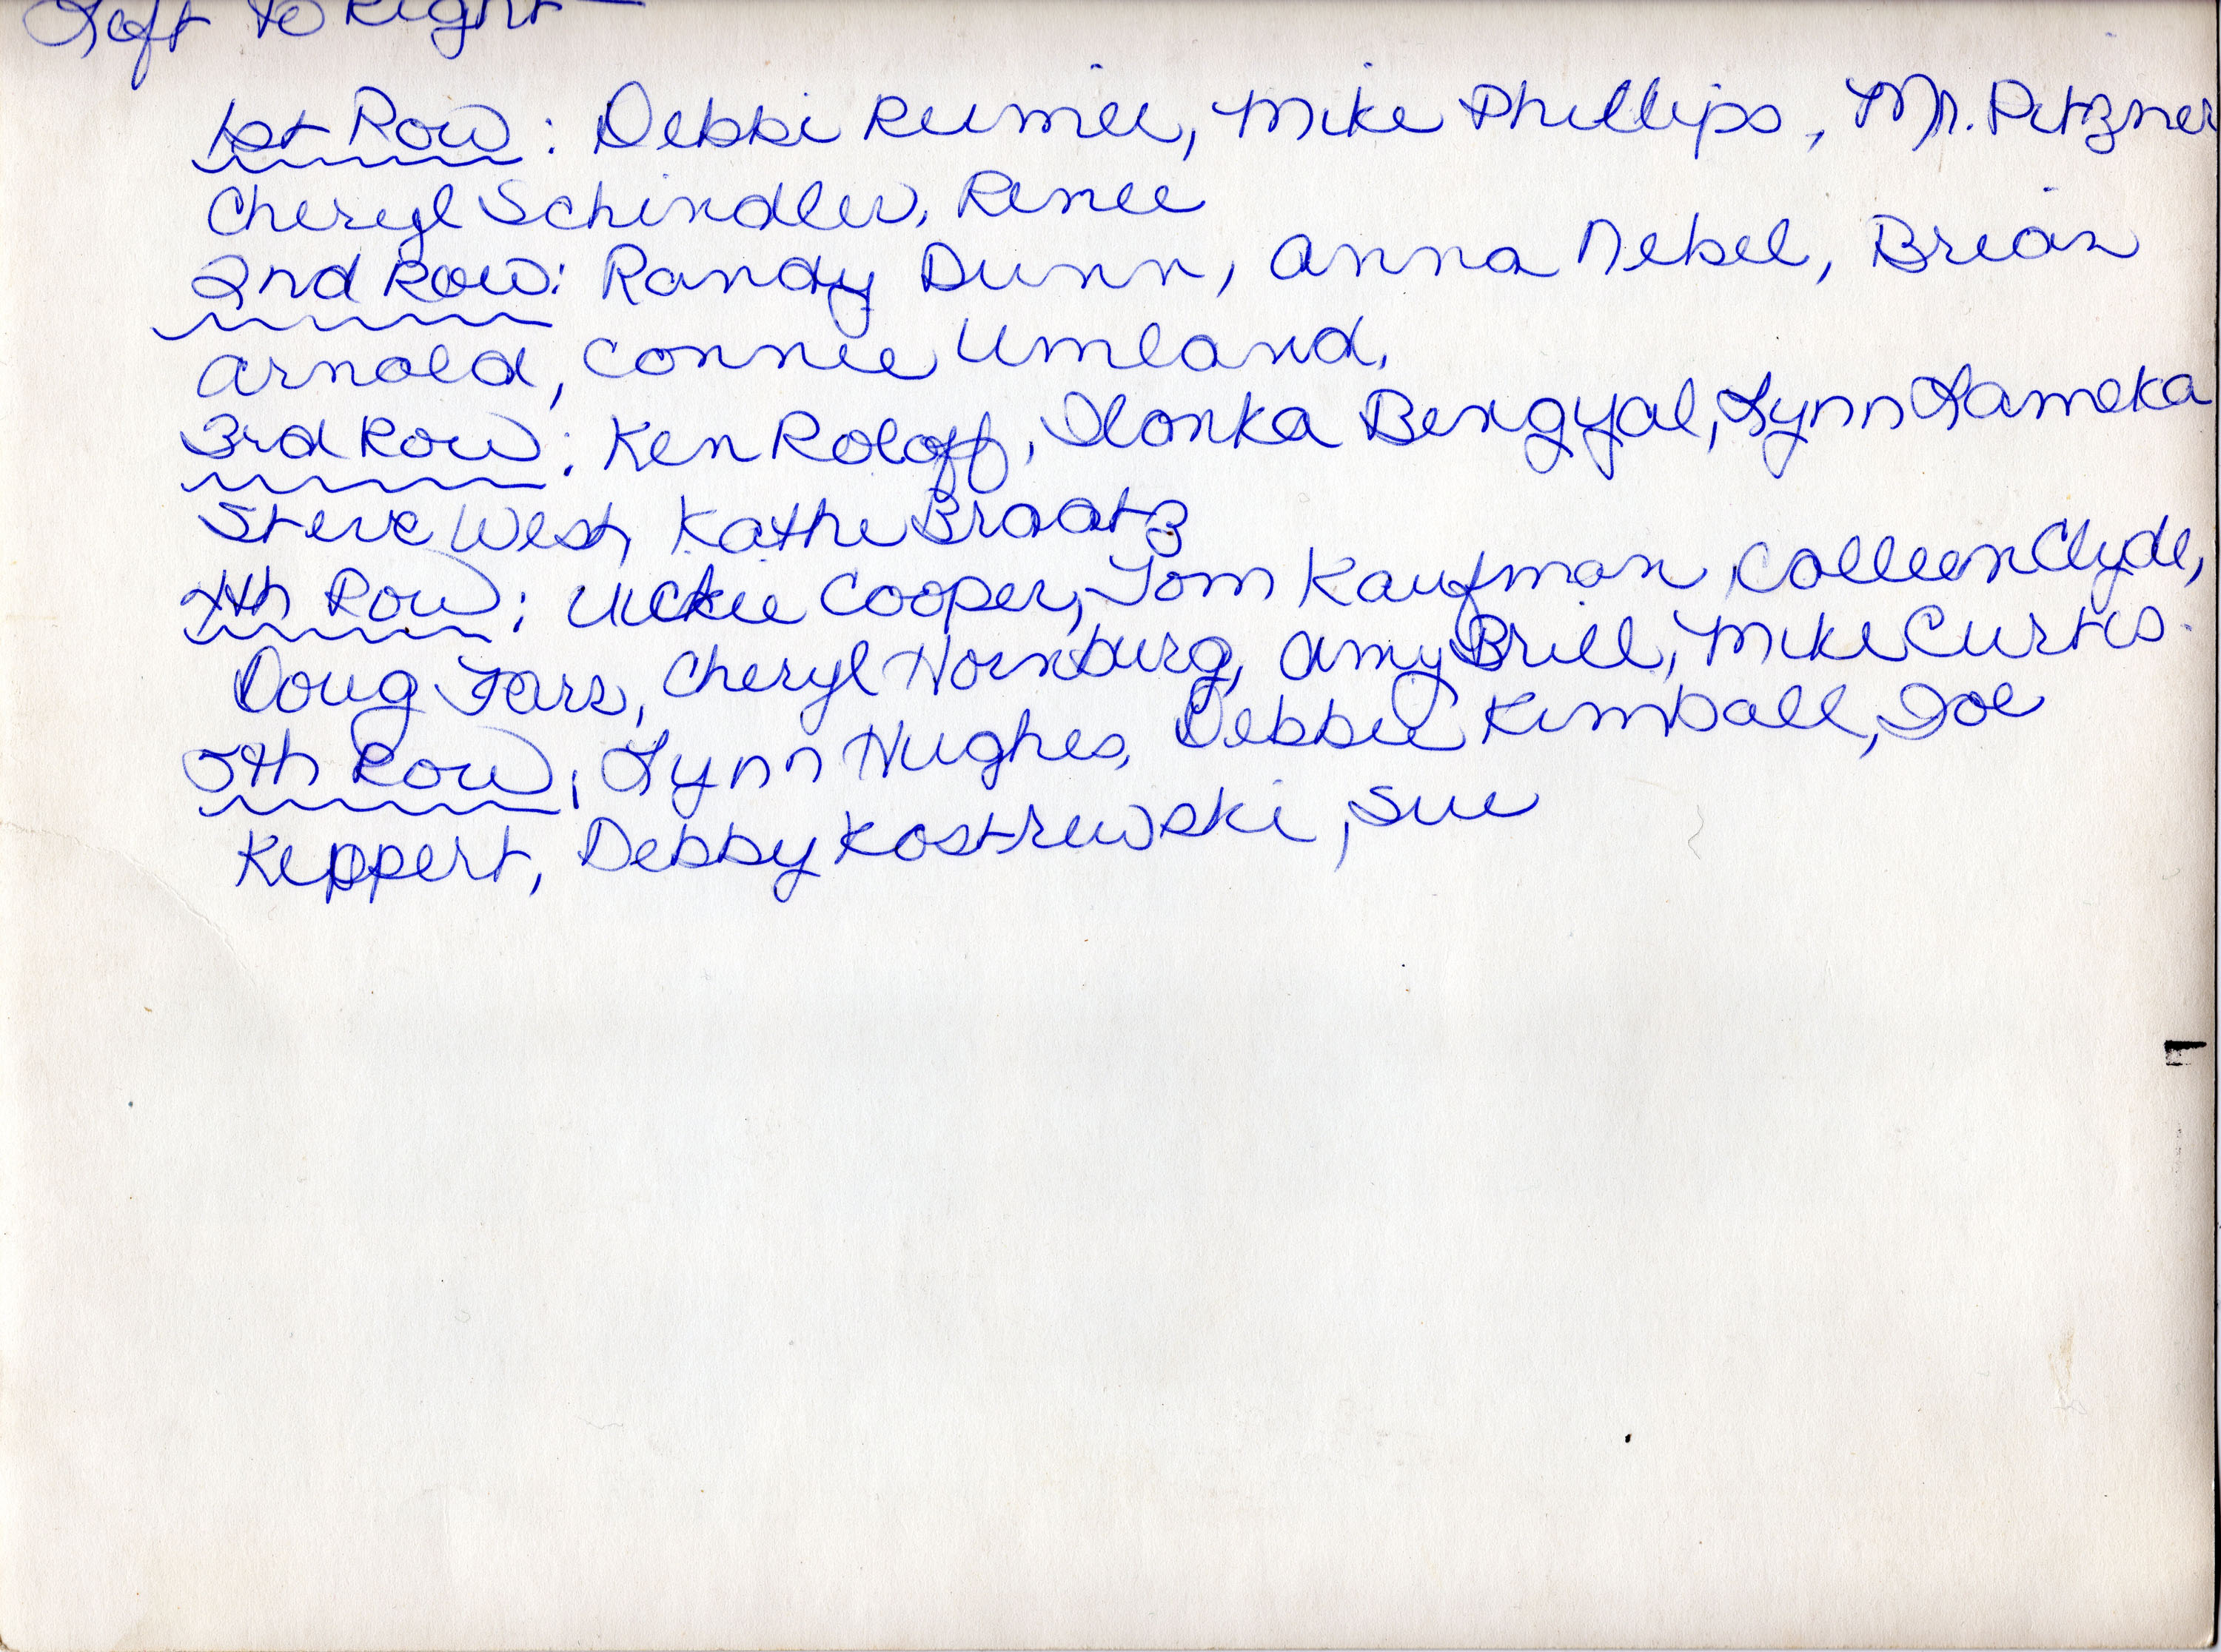 Left to Right
1st Row: Debbi Rumie, Mike Phillips, Mr. Pitzner
Cheryl Schindler, Renee
2nd Row: Randy Dunn, Anna Nebel, Brian
Arnold, Connie Umland,
3rd Row: Ken Roloff, Ilonka Bengyal, Lynn Lameka
Steve West, Kathe Braatz
4th Row: Vickie Cooper, Tom Kaufman, Colleen Clyde,
Doug Farr, Cheryl Hornburg, Amy Brill, Mike Curtis
5th Row: Lynn Hughes, Debbie Kimball, Joe
Keppert, Debby Kostrewski, Sue